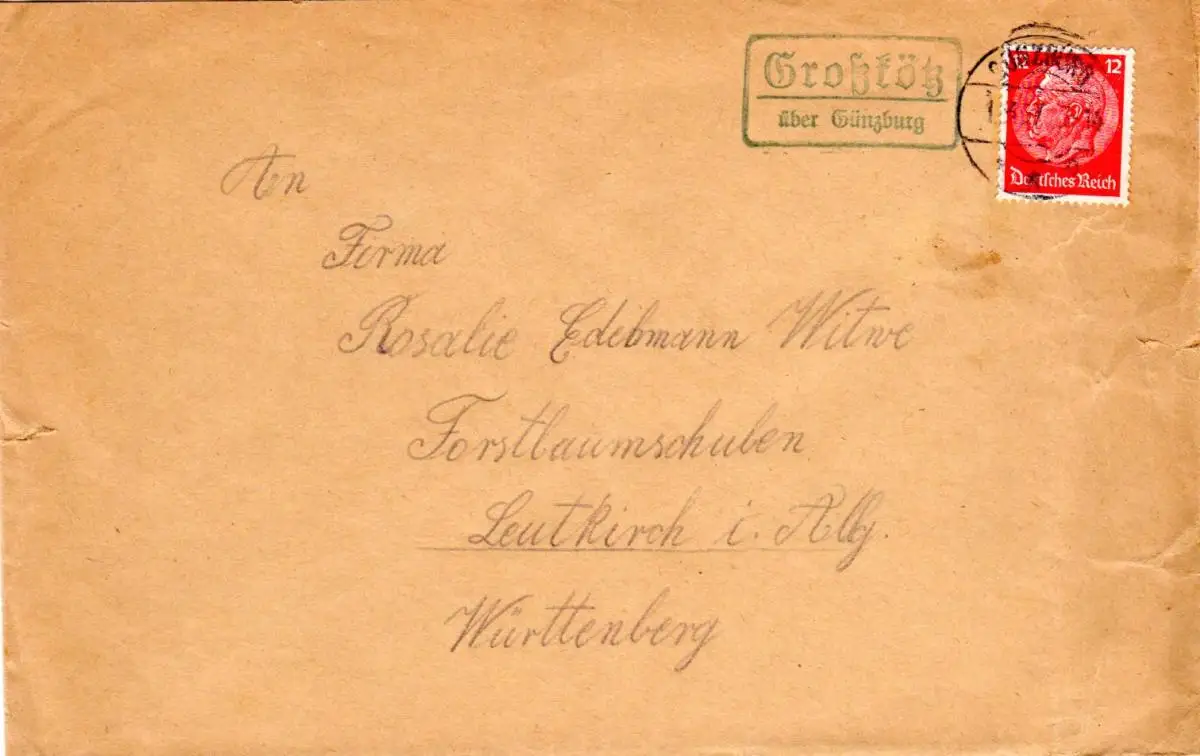 Großkötz
über Günzburg
12
Deutsches Reich
An
Firma
Rosalie Edelmann Witwe
Forstbaumschulen
Leutkirch i. Allg.
Württenberg